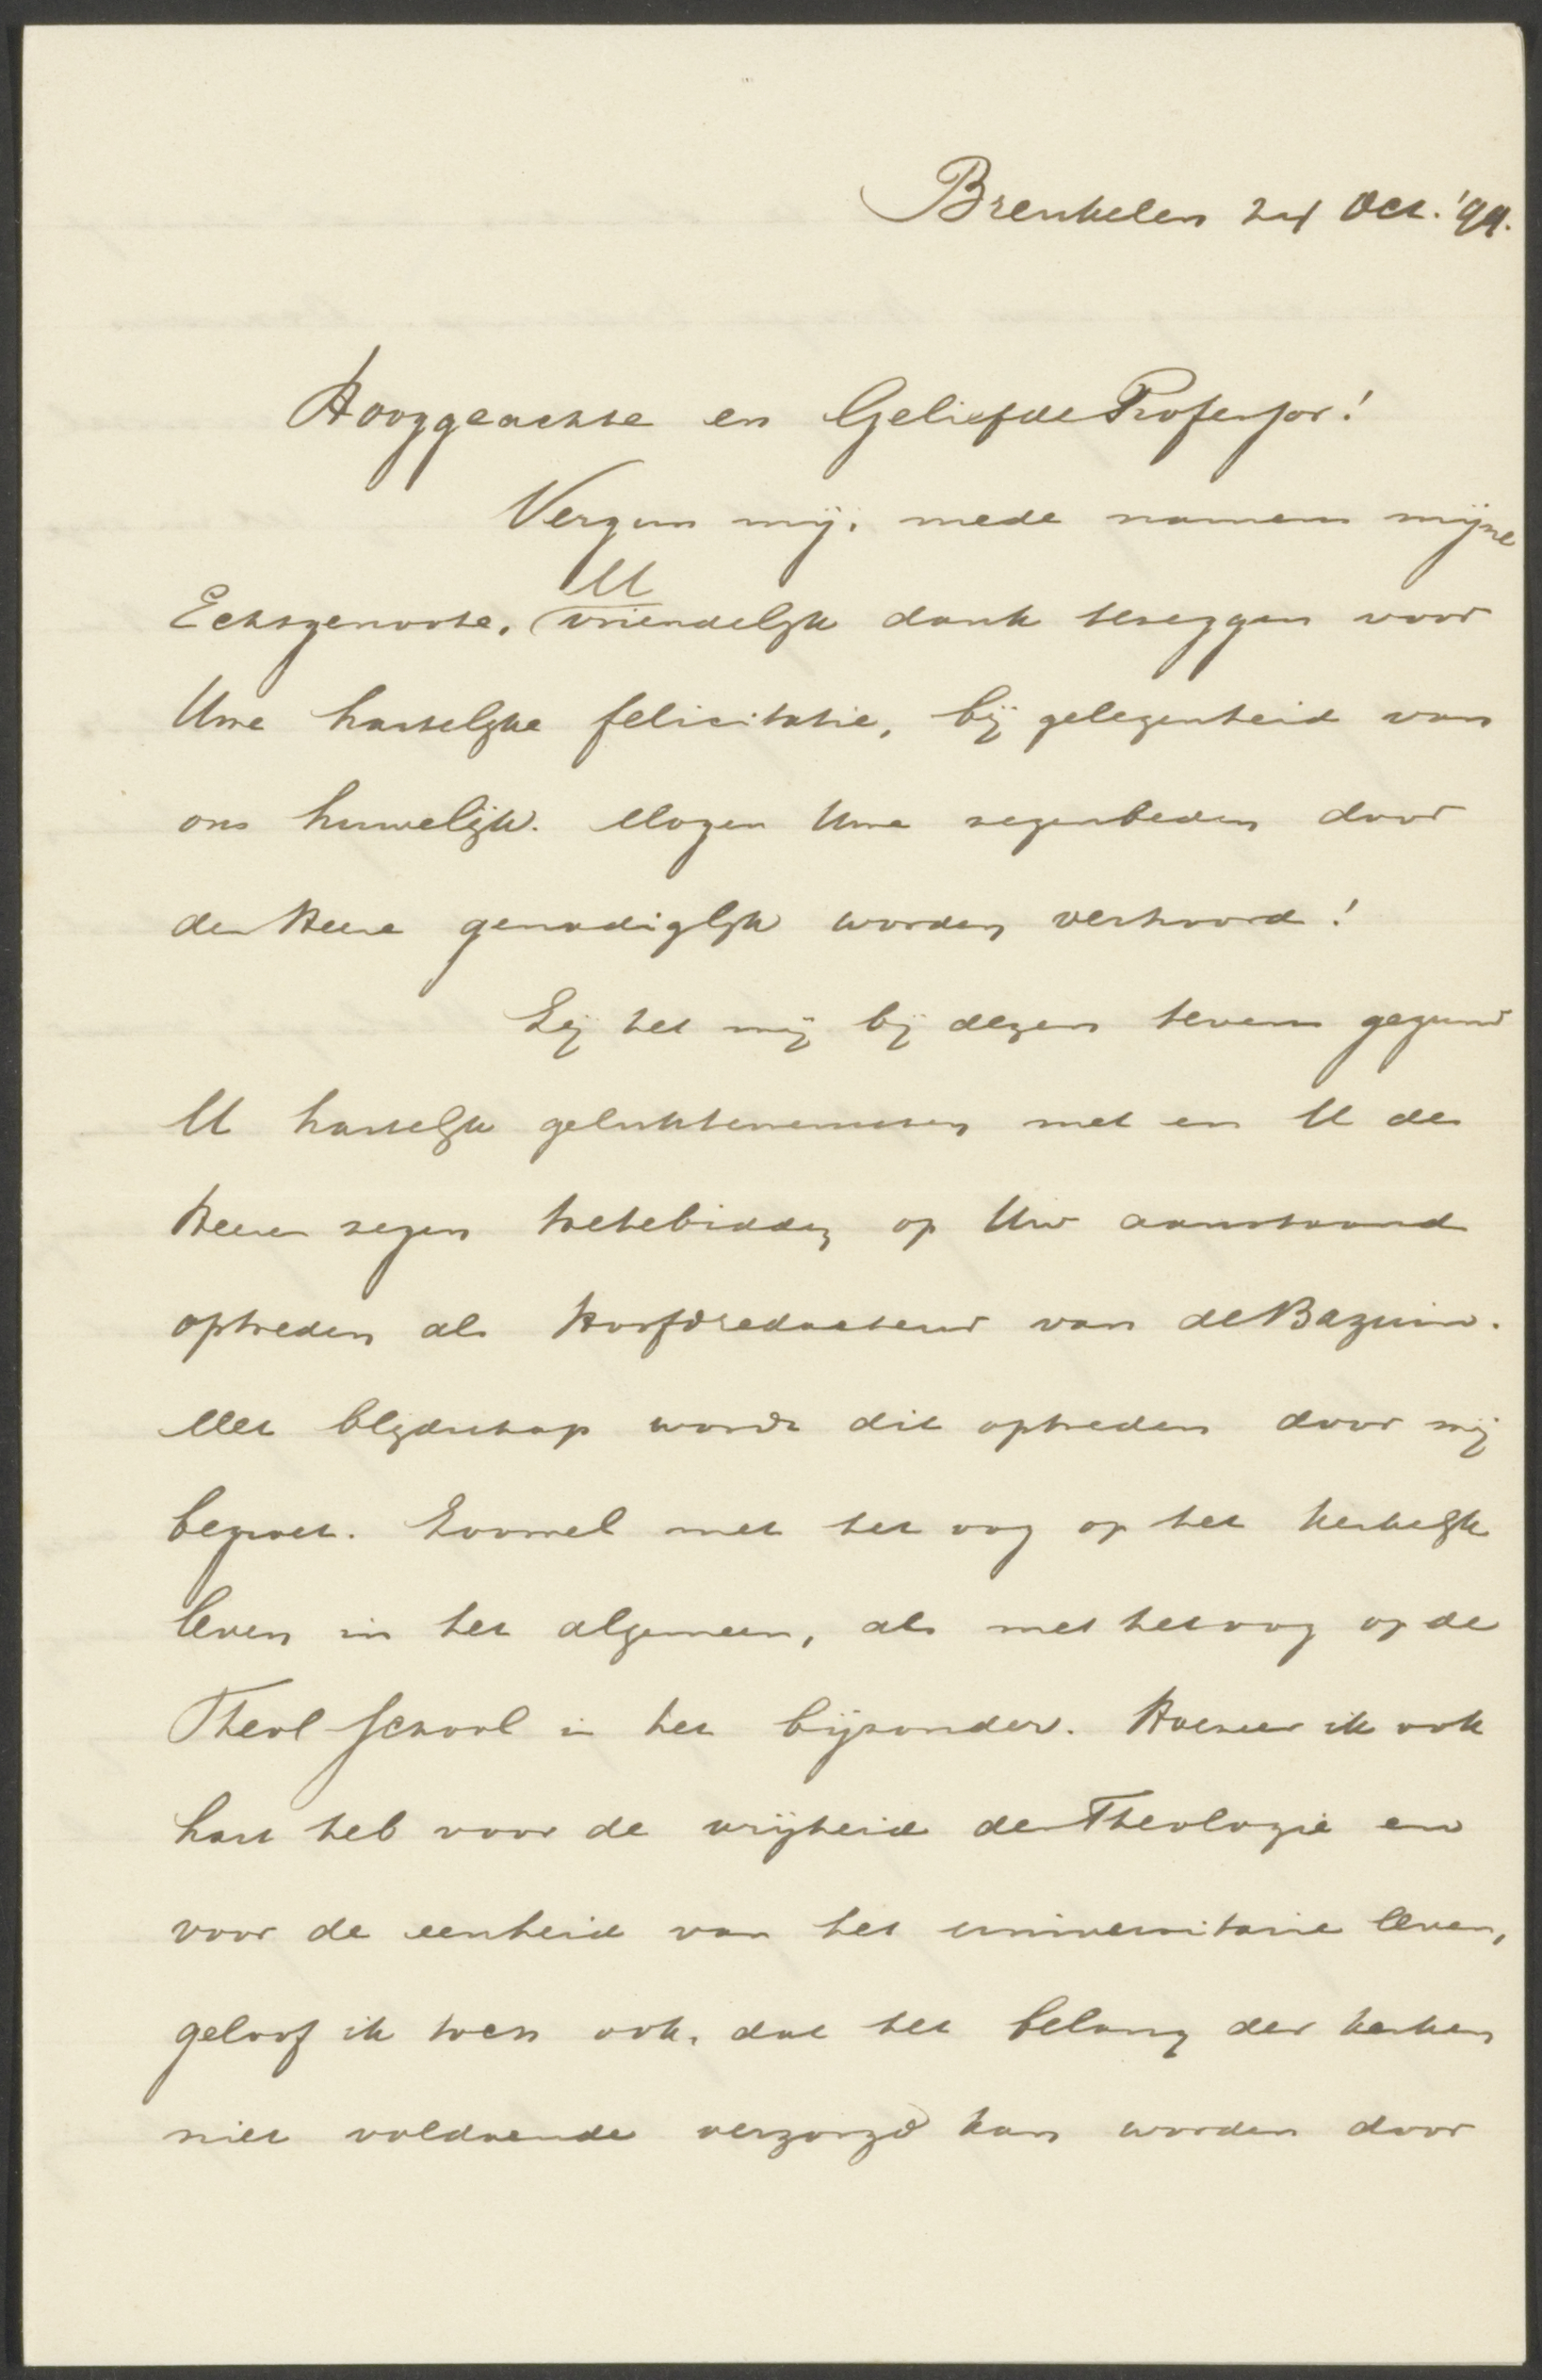 Breukelen 24 Oct. '99.
Hooggeachte en Geliefde Professor!
Vergun mij, mede namens mijne
Echtgenoote, U vriendelijk dank te zeggen voor
Uwe hartelijke felicitatie, bij gelegenheid van
ons huwelijk. Mogen Uwe zegenbeden door
den Heere genadiglijk worden verhoord!
Zij het mij bij dezen tevens gegund
U hartelijk geluk te wenschen met en U des
Heeren zegen toe te bidden op Uw aanstaand
optreden als Hoofdredacteur van de Bazuin.
Met blijdschap wordt dit optreden door mij
begroet. Zoowel met het oog op het kerkelijk
leven in het algemeen, als met het oog op de
Theol School in het bijzonder. Hoezeer ik ook
hart heb voor de vrijheid der Theologie en
voor de eenheid van het universitaire leven,
geloof ik toch ook, dat het belang der kerken
niet voldoende verzorgd kan worden door